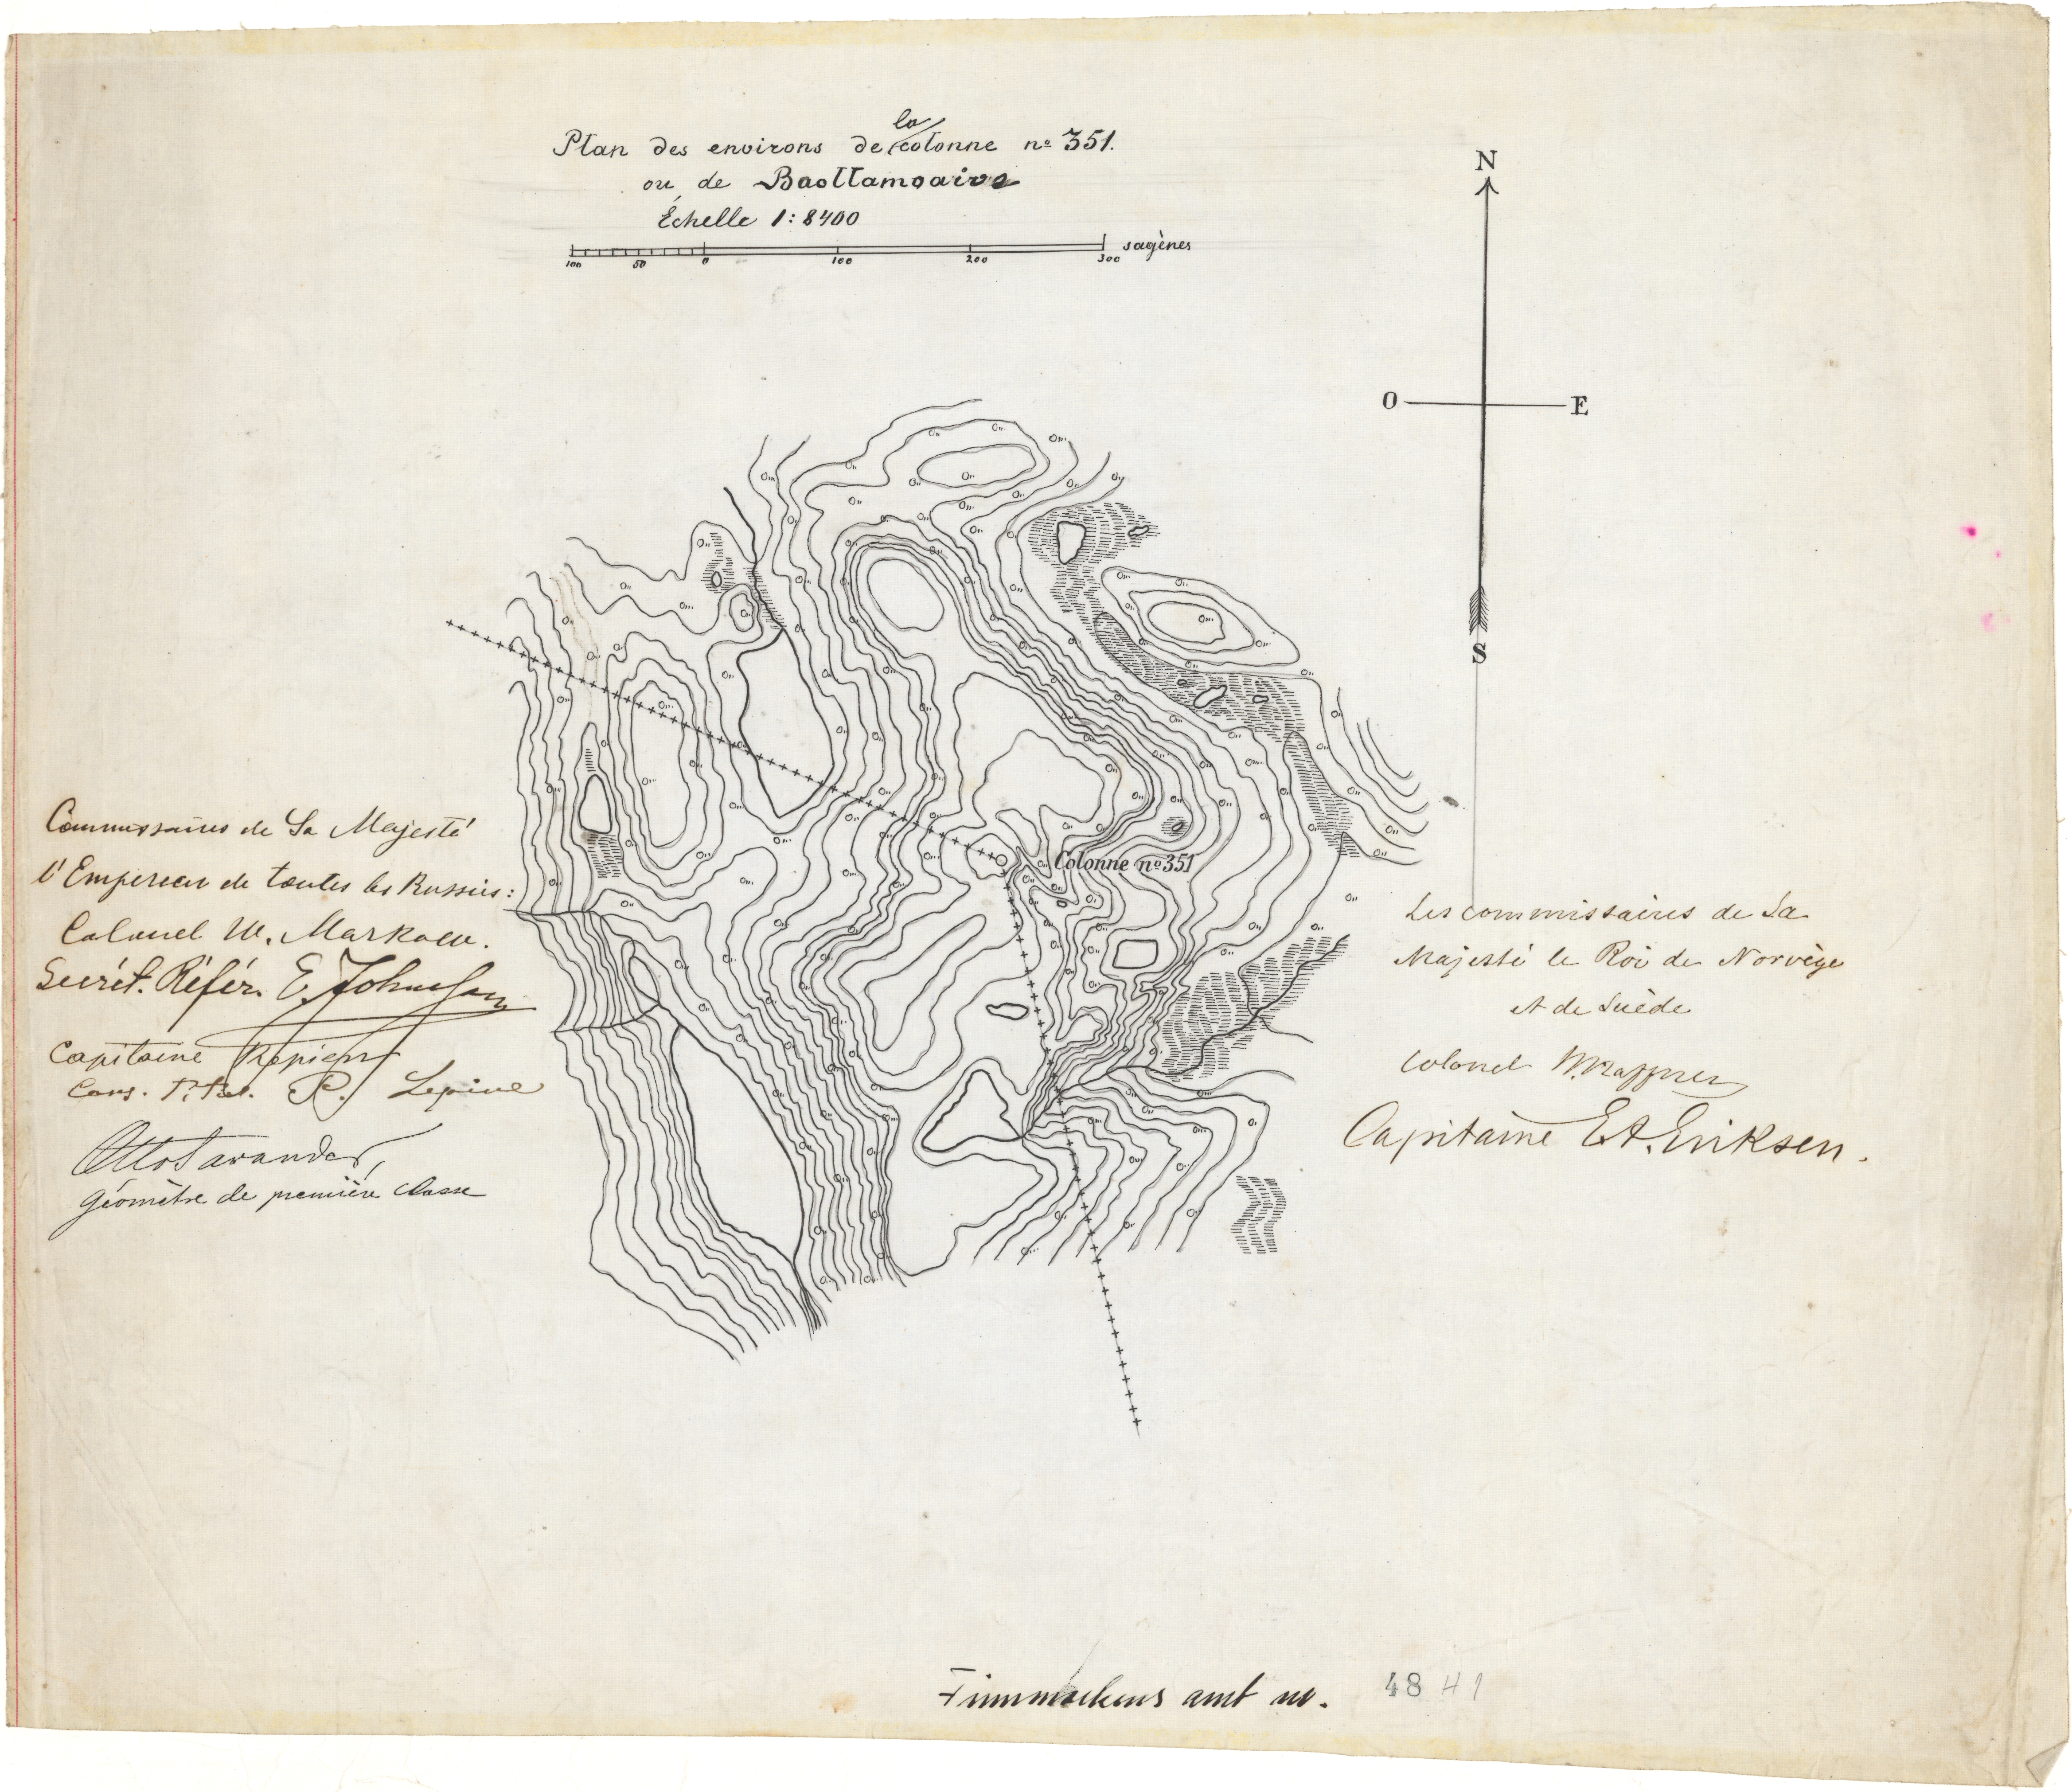 Plan des environs de la colonne nº 351.
ou de Baollamoaive
Échelle 1:8400
100 50 0 100 200 300 sagènes
N
O E
S
Colonne nº 351
Commissaires de Sa Majesté
l'Empereur de toutes les Russies:
Colonel W. Markow.
Secrét. Référ. E. Johnsson
Capitaine
Cons. P. R. Lepine
Otto Savander,
Géomètre de première classe
Les commissaires de Sa
Majesté le Roi de Norvège
et de Suède
Colonel
Capitaine E.A. Eriksen.
Finmarkens amt no. 48 41